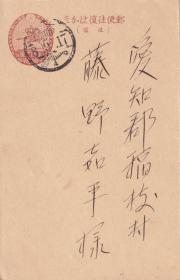 郵便往復はがき
(往信)
愛知郡稲枝村
藤野嘉平様